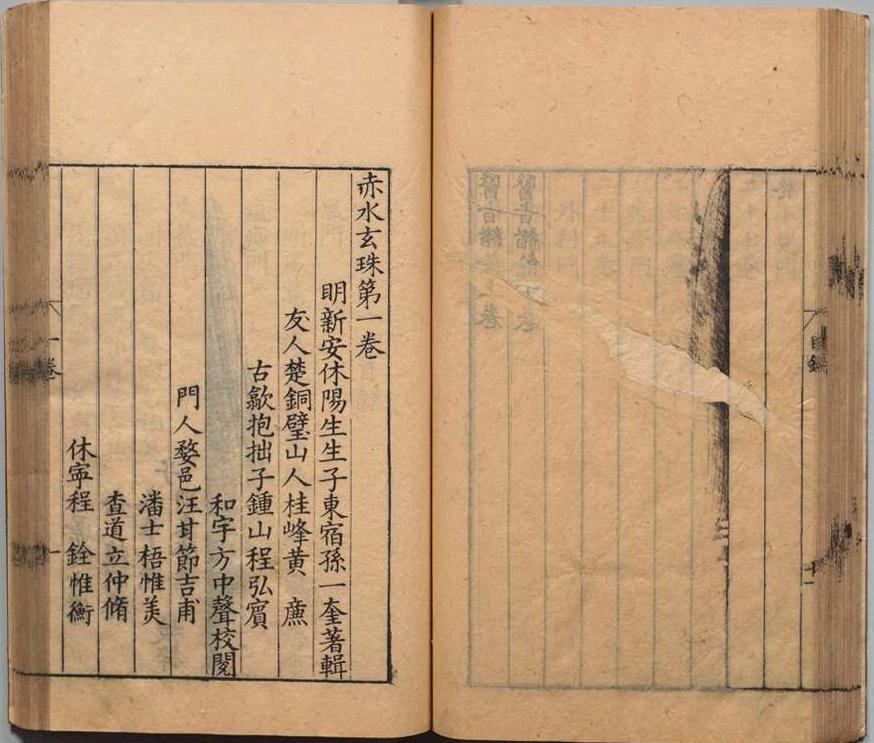 目錄
十一
赤水玄珠第一卷
明新安休陽生生子東宿孫一奎著輯
友人楚銅璧山人桂峰黃 廉
古歙抱拙子鍾山程弘賓
和宇方中聲校閱
門人婺邑汪甘節吉甫
潘士梧惟美
查道立仲脩
休寧程 銓惟衡
一卷
一